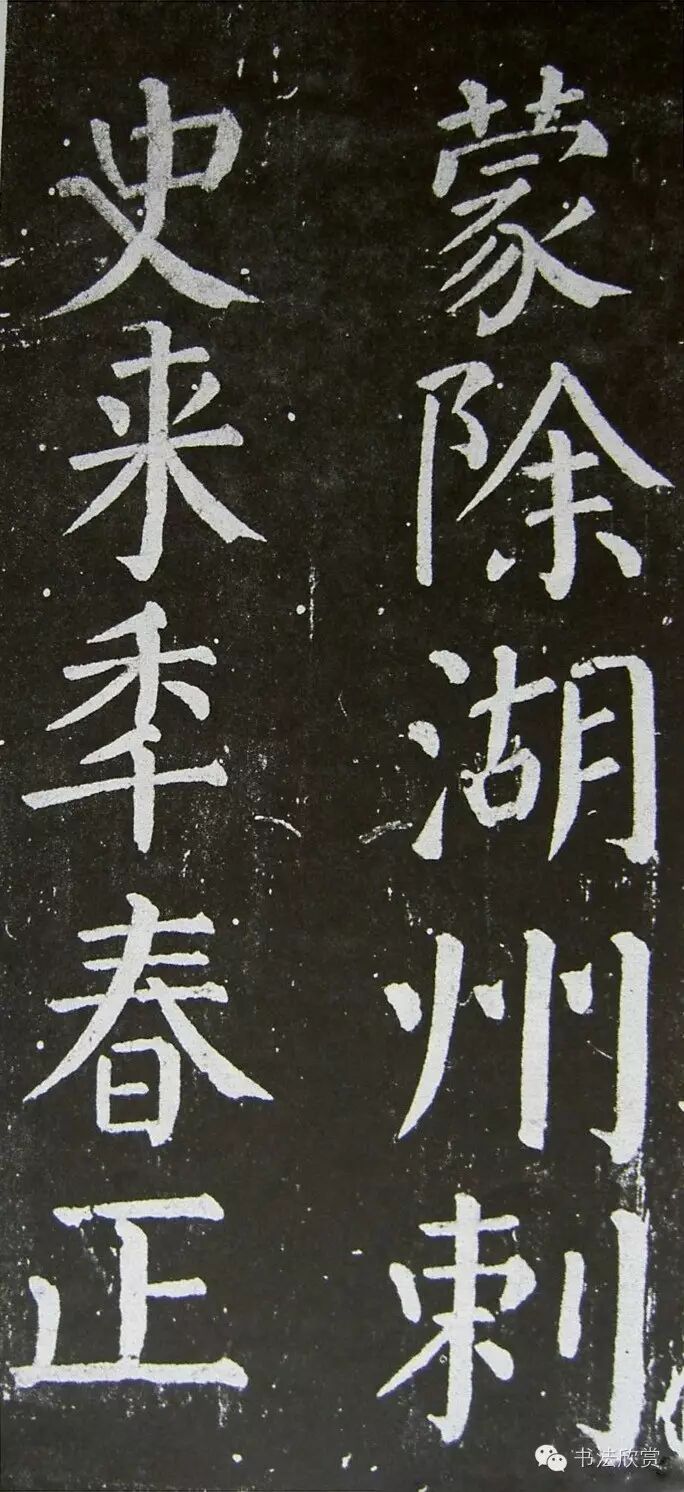 蒙除湖州刺
史来季春正
书法欣赏